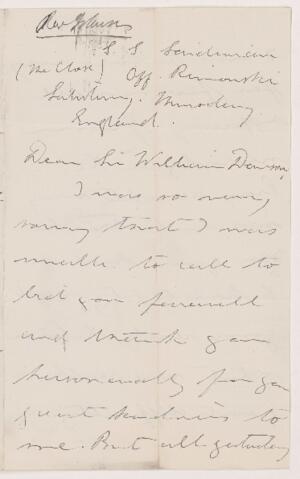 S. S. Sardinian
(The Close) Off. Rimouski
Salisbury. Thursday
England.
Dear Sir William Dawson,
I was so very
sorry that I was
unable to call to
bid you farewell
and thank you
personally for your
great kindness to
me. But all yesterday